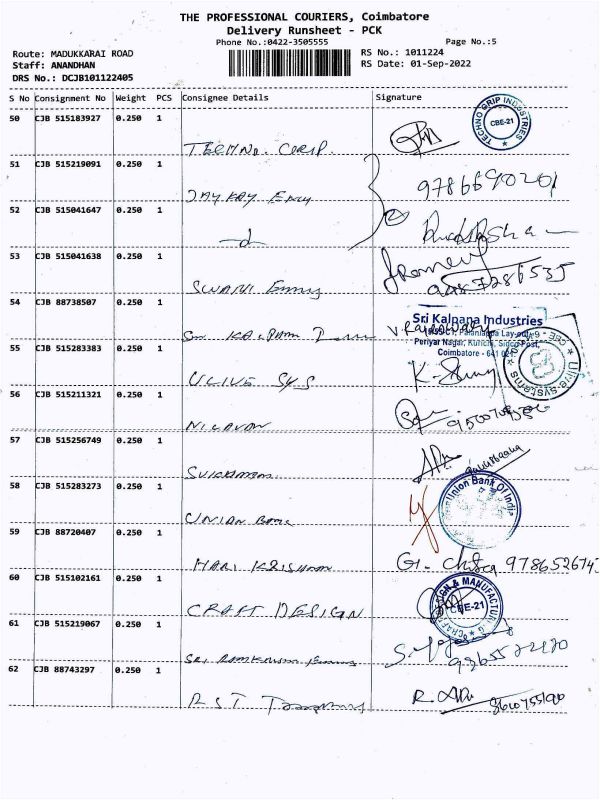 THE PROFESSIONAL COURIERS, Coimbatore
Delivery Runsheet - PCK
Phone No.:0422-3505555
Page No.:5
Route: MADUKKARAI ROAD
RS No.: 1011224
Staff: ANANDHAN
RS Date: 01-Sep-2022
DRS No.: DCJB101122405
S No Consignment No Weight PCS Consignee Details Signature
50 CJB 515183927 0.250 1
TECHNO GRIP INDUSTRIES
CBE-21
TECHNO. GRIP.
51 CJB 515219091 0.250 1
JAY KAY Engg
9786690201
52 CJB 515041647 0.250 1
53 CJB 515041638 0.250 1
SWANI Engg
9487286535
54 CJB 88738507 0.250 1
Sri Kalpana Industries
Periyar Nagar, Kurichi, Sidco Post,
Coimbatore - 641 021.
Sri KALPANA
55 CJB 515283383 0.250 1
ULIVE SYS
56 CJB 515211321 0.250 1
NILAVAN
57 CJB 515256749 0.250 1
58 CJB 515283273 0.250 1
Union Bank Of India
UNION Bank
59 CJB 88720407 0.250 1
HARI KRISHNA
G. 978652674
60 CJB 515102161 0.250 1
CRAFT DESIGN & MANUFACTURING
CBE-21
CRAFT DESIGN
61 CJB 515219067 0.250 1
SRI RAMKRISHNA Engg
62 CJB 88743297 0.250 1
RST
R.